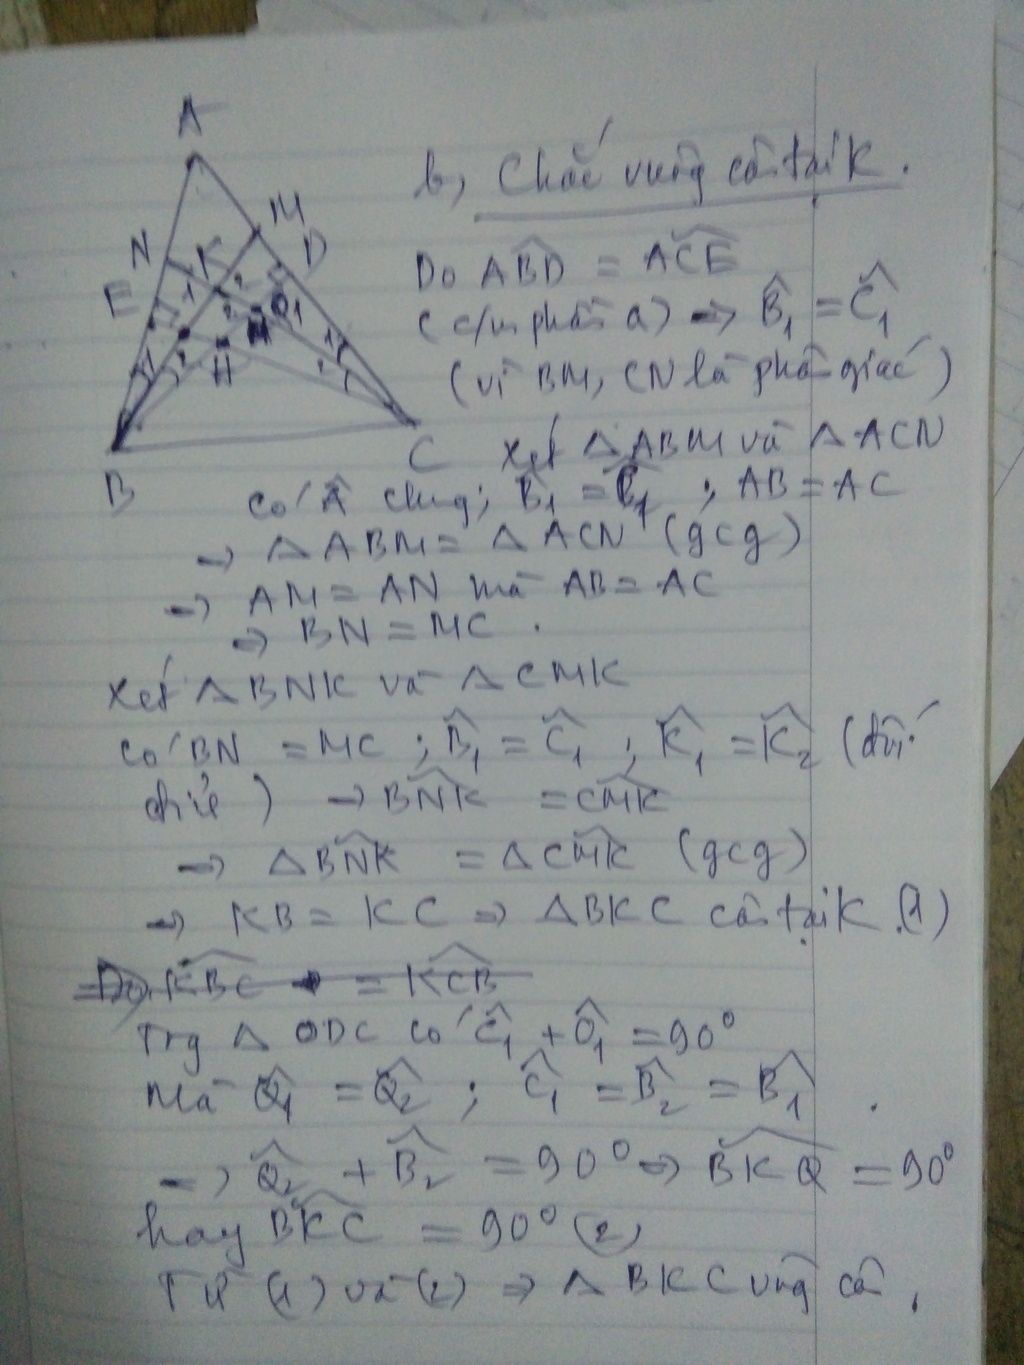 A
M
N
K
D
E
H
B
C
b, Chắc vuông cân tại K.
Do ABD = ACE
(c/m phần a) → B̂1 = Ĉ1
(vì BM, CN là phân giác)
Xét Δ ABM và Δ ACN
có Â chung; B̂1 = Ĉ1 ; AB = AC
→ Δ ABM = Δ ACN (gcg)
→ AM = AN mà AB = AC
→ BN = MC .
Xét Δ BNK và Δ CMK
có BN = MC ; B̂1 = Ĉ1 ; K̂1 = K̂2 (đối
đỉnh) → BNK = CMK
→ Δ BNK = Δ CMK (gcg)
→ KB = KC → Δ BKC cân tại K (1)
KBC = KCB
Trg Δ ODC có Ĉ1 + Ô1 = 90°
Mà Q̂1 = Q̂2 ; Ĉ1 = B̂2 = B̂1
→ Q̂2 + B̂2 = 90° → BKQ = 90°
hay BKC = 90° (2)
Từ (1) và (2) → Δ BKC vuông cân.